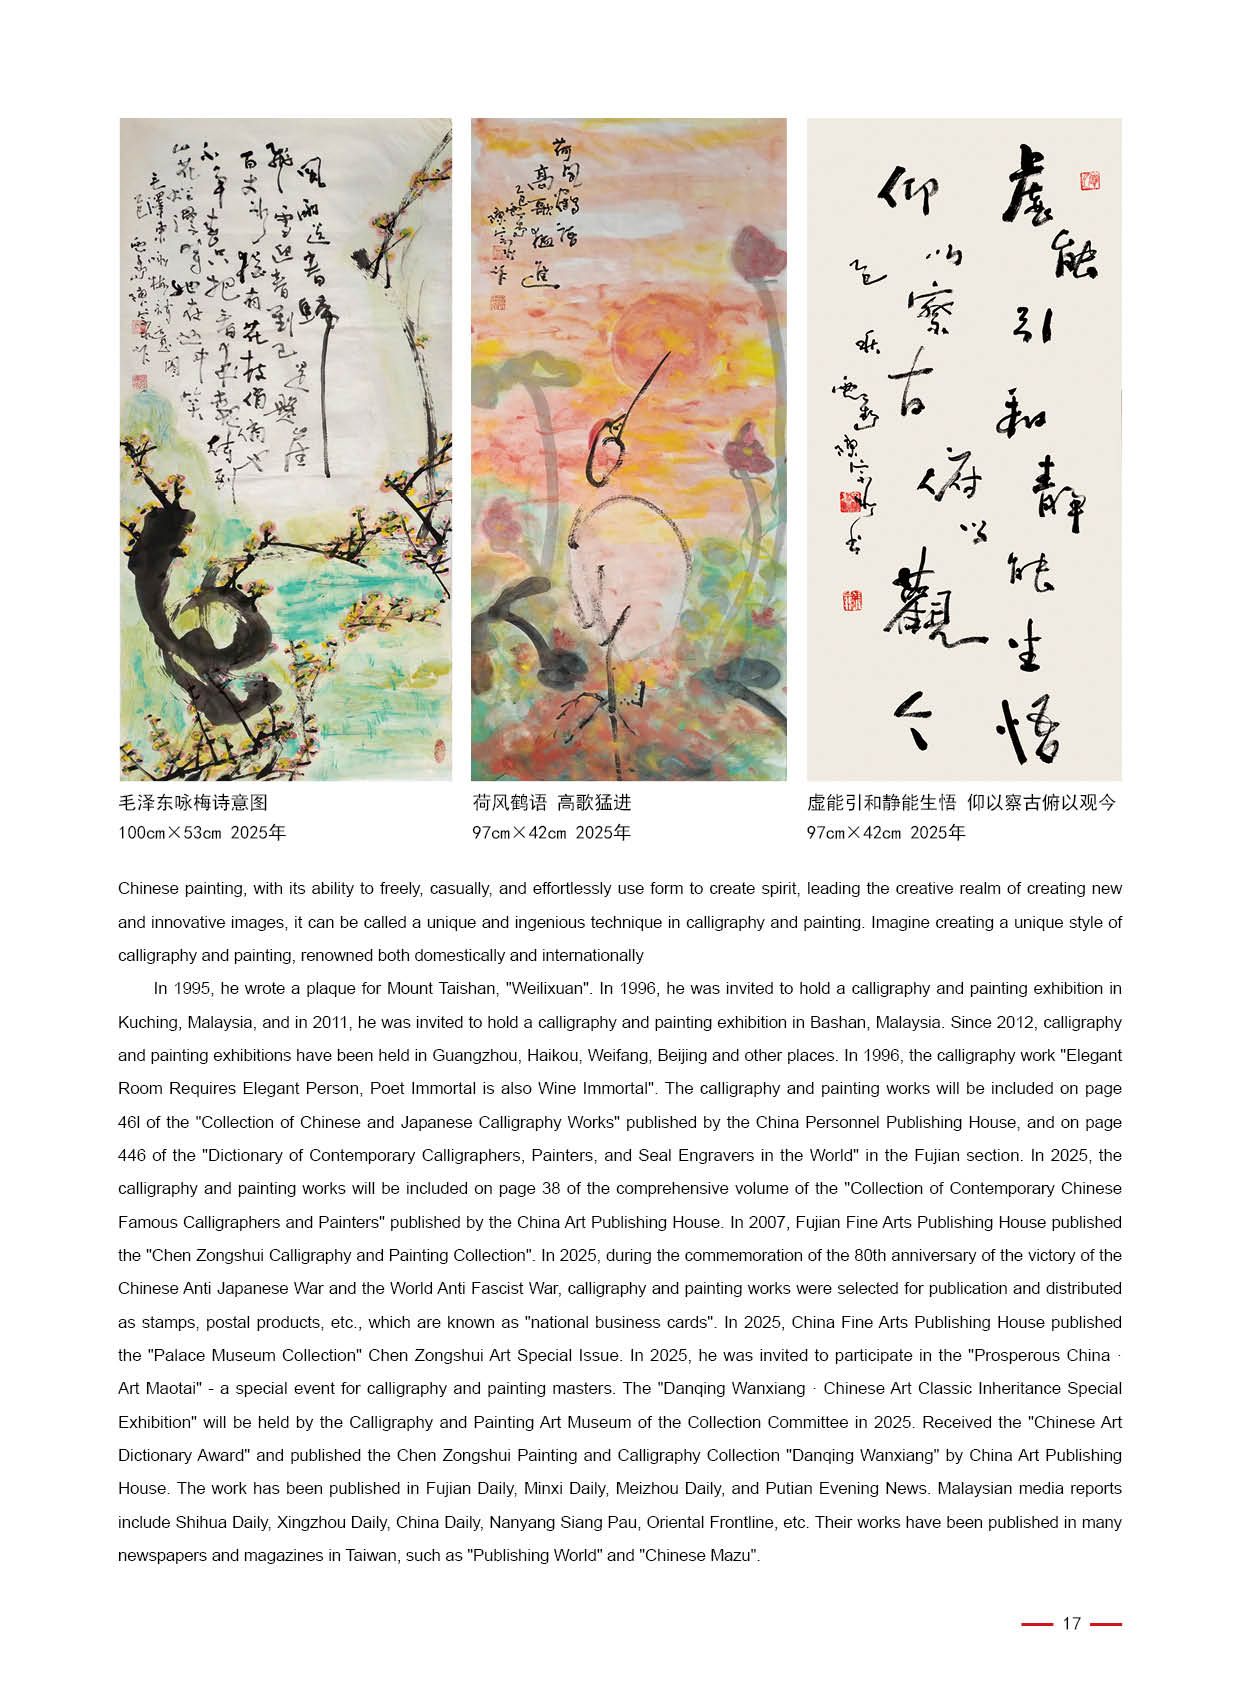 風雨送春歸
飛雪迎春到已是懸崖
百丈冰猶有花枝俏俏也
不爭春只把春來報待到
山花爛漫時她在叢中笑
毛澤東咏梅詩意图
荷風鶴語
高歌猛進
虛能引和靜能生悟
仰以察古俯以觀今
乙巳秋
毛泽东咏梅诗意图
100cm×53cm 2025年
荷风鹤语 高歌猛进
97cm×42cm 2025年
虚能引和静能生悟 仰以察古俯以观今
97cm×42cm 2025年
Chinese painting, with its ability to freely, casually, and effortlessly use form to create spirit, leading the creative realm of creating new
and innovative images, it can be called a unique and ingenious technique in calligraphy and painting. Imagine creating a unique style of
calligraphy and painting, renowned both domestically and internationally
In 1995, he wrote a plaque for Mount Taishan, "Weilixuan". In 1996, he was invited to hold a calligraphy and painting exhibition in
Kuching, Malaysia, and in 2011, he was invited to hold a calligraphy and painting exhibition in Bashan, Malaysia. Since 2012, calligraphy
and painting exhibitions have been held in Guangzhou, Haikou, Weifang, Beijing and other places. In 1996, the calligraphy work "Elegant
Room Requires Elegant Person, Poet Immortal is also Wine Immortal". The calligraphy and painting works will be included on page
46l of the "Collection of Chinese and Japanese Calligraphy Works" published by the China Personnel Publishing House, and on page
446 of the "Dictionary of Contemporary Calligraphers, Painters, and Seal Engravers in the World" in the Fujian section. In 2025, the
calligraphy and painting works will be included on page 38 of the comprehensive volume of the "Collection of Contemporary Chinese
Famous Calligraphers and Painters" published by the China Art Publishing House. In 2007, Fujian Fine Arts Publishing House published
the "Chen Zongshui Calligraphy and Painting Collection". In 2025, during the commemoration of the 80th anniversary of the victory of the
Chinese Anti Japanese War and the World Anti Fascist War, calligraphy and painting works were selected for publication and distributed
as stamps, postal products, etc., which are known as "national business cards". In 2025, China Fine Arts Publishing House published
the "Palace Museum Collection" Chen Zongshui Art Special Issue. In 2025, he was invited to participate in the "Prosperous China ·
Art Maotai" - a special event for calligraphy and painting masters. The "Danqing Wanxiang · Chinese Art Classic Inheritance Special
Exhibition" will be held by the Calligraphy and Painting Art Museum of the Collection Committee in 2025. Received the "Chinese Art
Dictionary Award" and published the Chen Zongshui Painting and Calligraphy Collection "Danqing Wanxiang" by China Art Publishing
House. The work has been published in Fujian Daily, Minxi Daily, Meizhou Daily, and Putian Evening News. Malaysian media reports
include Shihua Daily, Xingzhou Daily, China Daily, Nanyang Siang Pau, Oriental Frontline, etc. Their works have been published in many
newspapers and magazines in Taiwan, such as "Publishing World" and "Chinese Mazu".
17